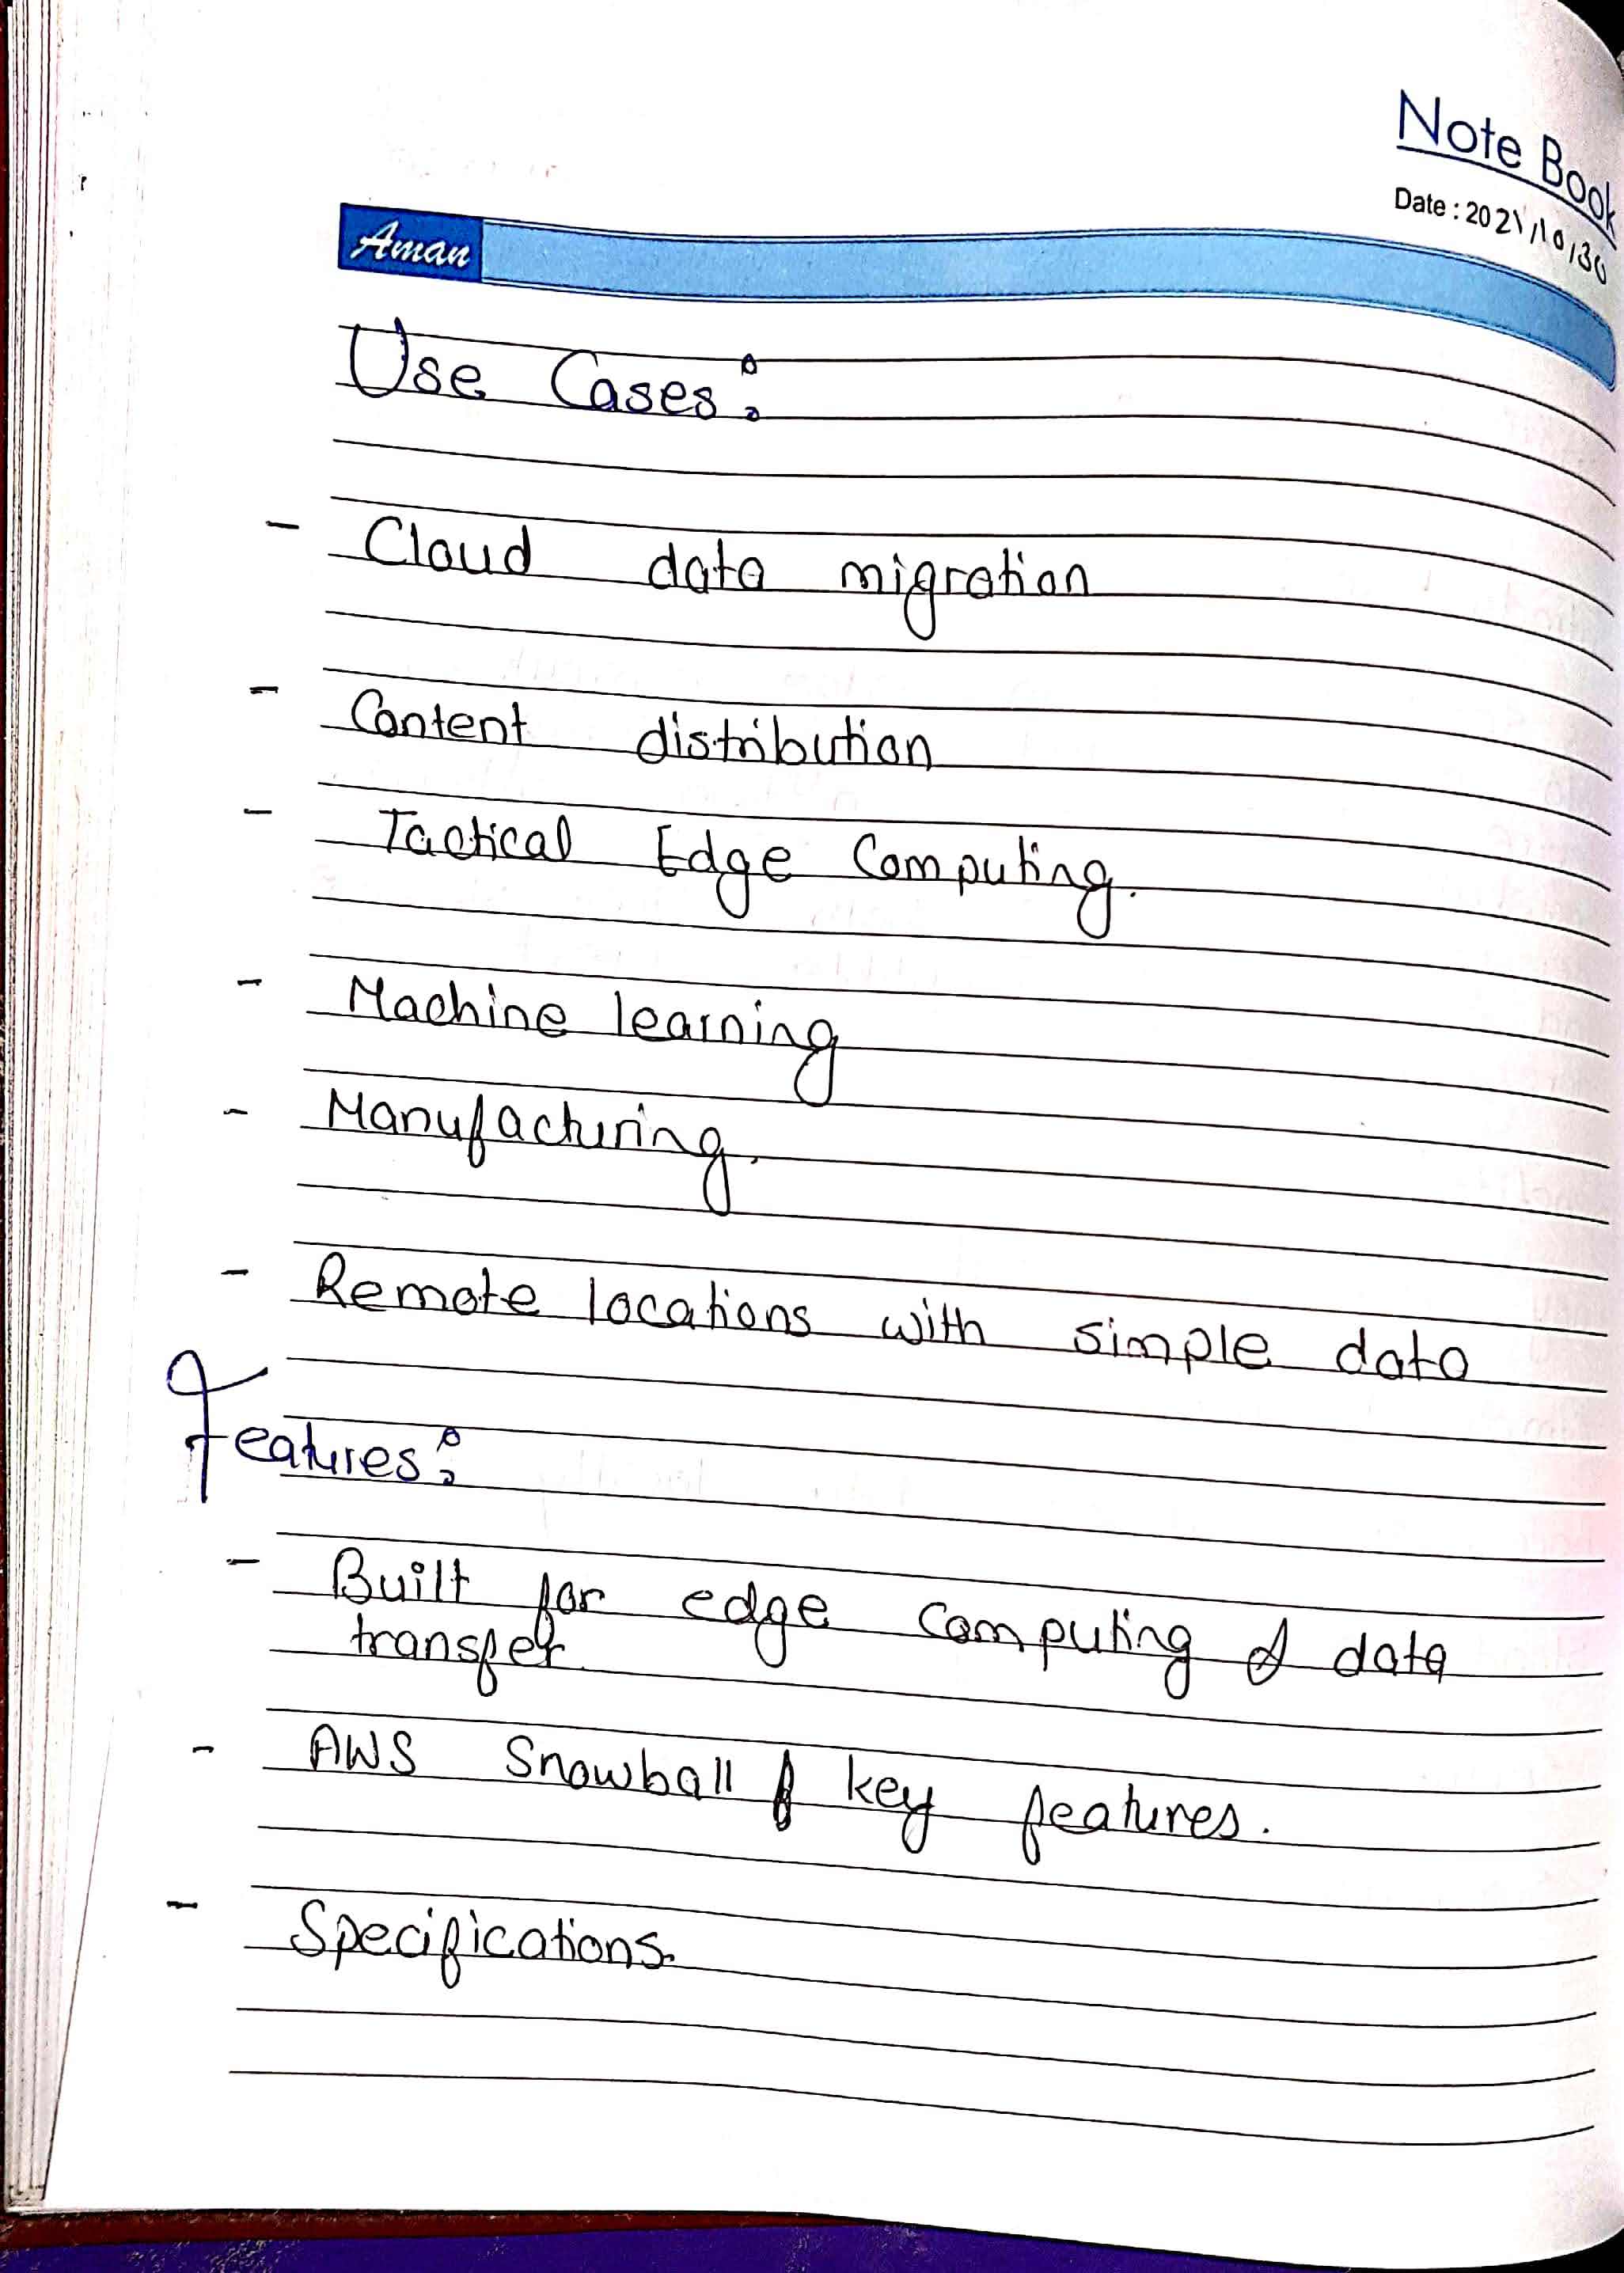 Note Book
Date : 2021/10/30
Aman
Use Cases:
- Cloud data migration
- Content distribution
- Tactical Edge Computing.
- Machine learning
- Manufacturing.
- Remote locations with simple data
Features:
- Built for edge computing & data
transfer.
- AWS Snowball key features.
- Specifications.